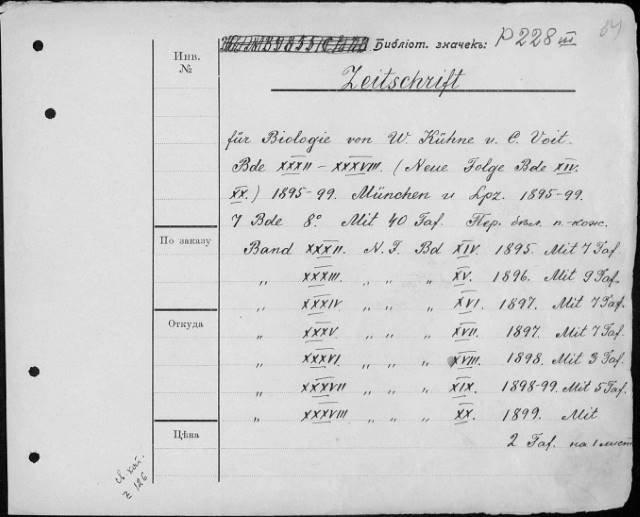 Библіот. значекъ: P 228 III
64
Инв.
№
Zeitschrift
für Biologie von W. Kühne u. C. Voit.
Bde XXXII – XXXVIII. (Neue Folge Bde XIV.
XX.) 1895-99. München u Lpz. 1895-99.
7 Bde 8° Mit 40 Taf. Пер. п.-кож.
По заказу
Band XXXII. N. F. Bd XIV. 1895. Mit 7 Taf.
„ XXXIII. „ „ „ XV. 1896. Mit 9 Taf.
„ XXXIV „ „ „ XVI. 1897. Mit 7 Taf.
Откуда
„ XXXV. „ „ „ XVII. 1897. Mit 7 Taf.
„ XXXVI „ „ „ XVIII. 1898. Mit 3 Taf.
„ XXXVII „ „ „ XIX. 1898-99. Mit 5 Taf.
„ XXXVIII „ „ „ XX. 1899. Mit
2 Taf. на 1 лист
Цѣна
z 126